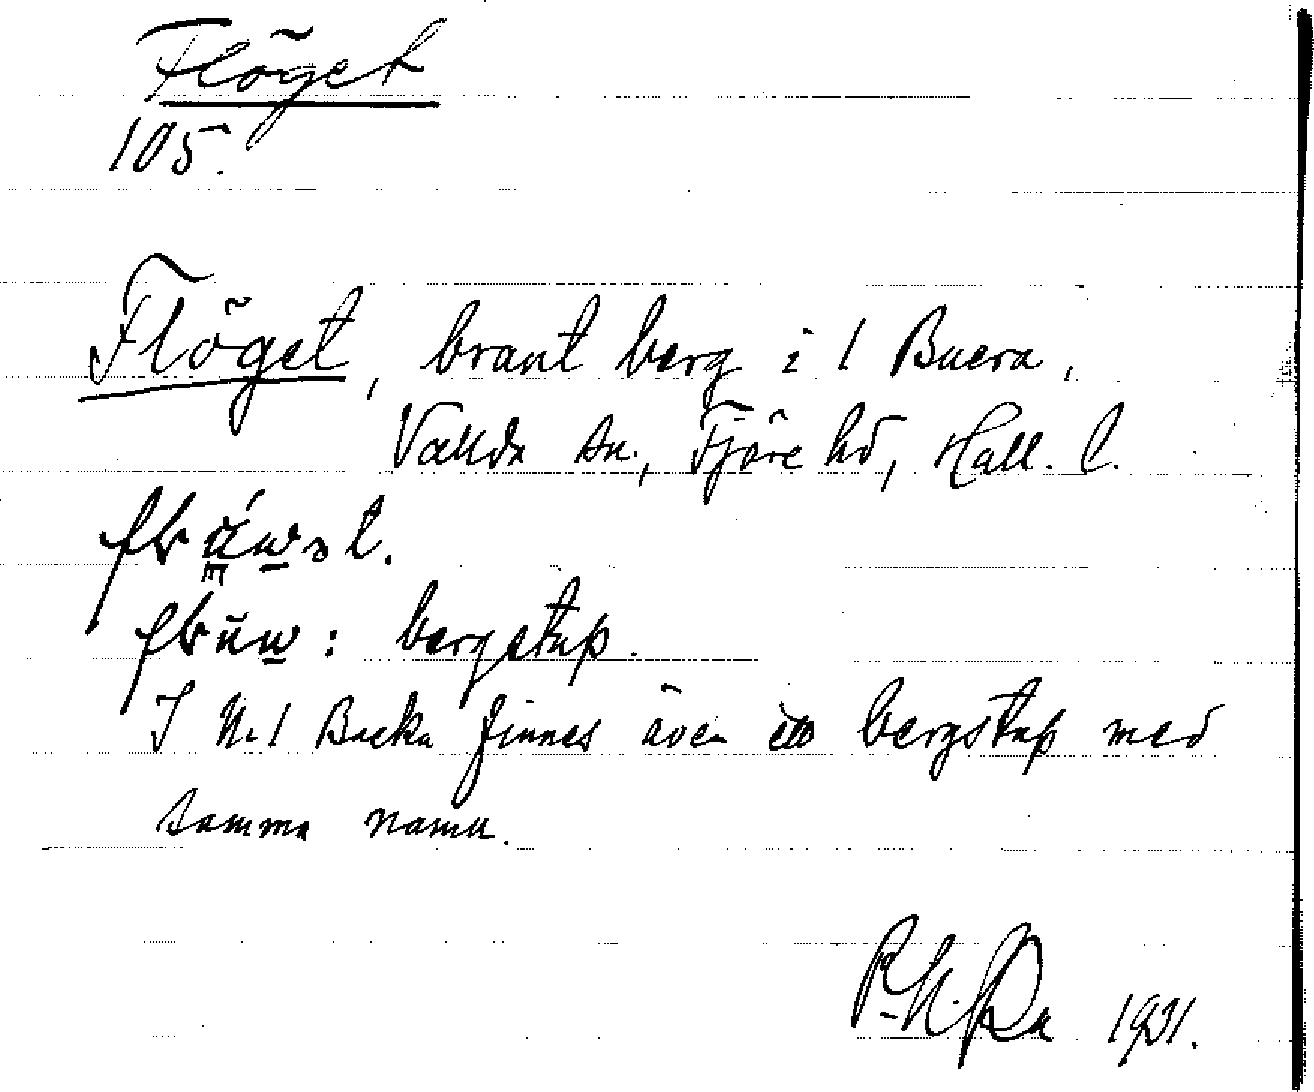 Flöget
105.
Flöget, brant berg i 1 Buera,
Vallda sn., Fjäre hd, Hall. l.
: bergstup.
I N:1 Backa finnes även ett bergstup med
samma namn.
1931.